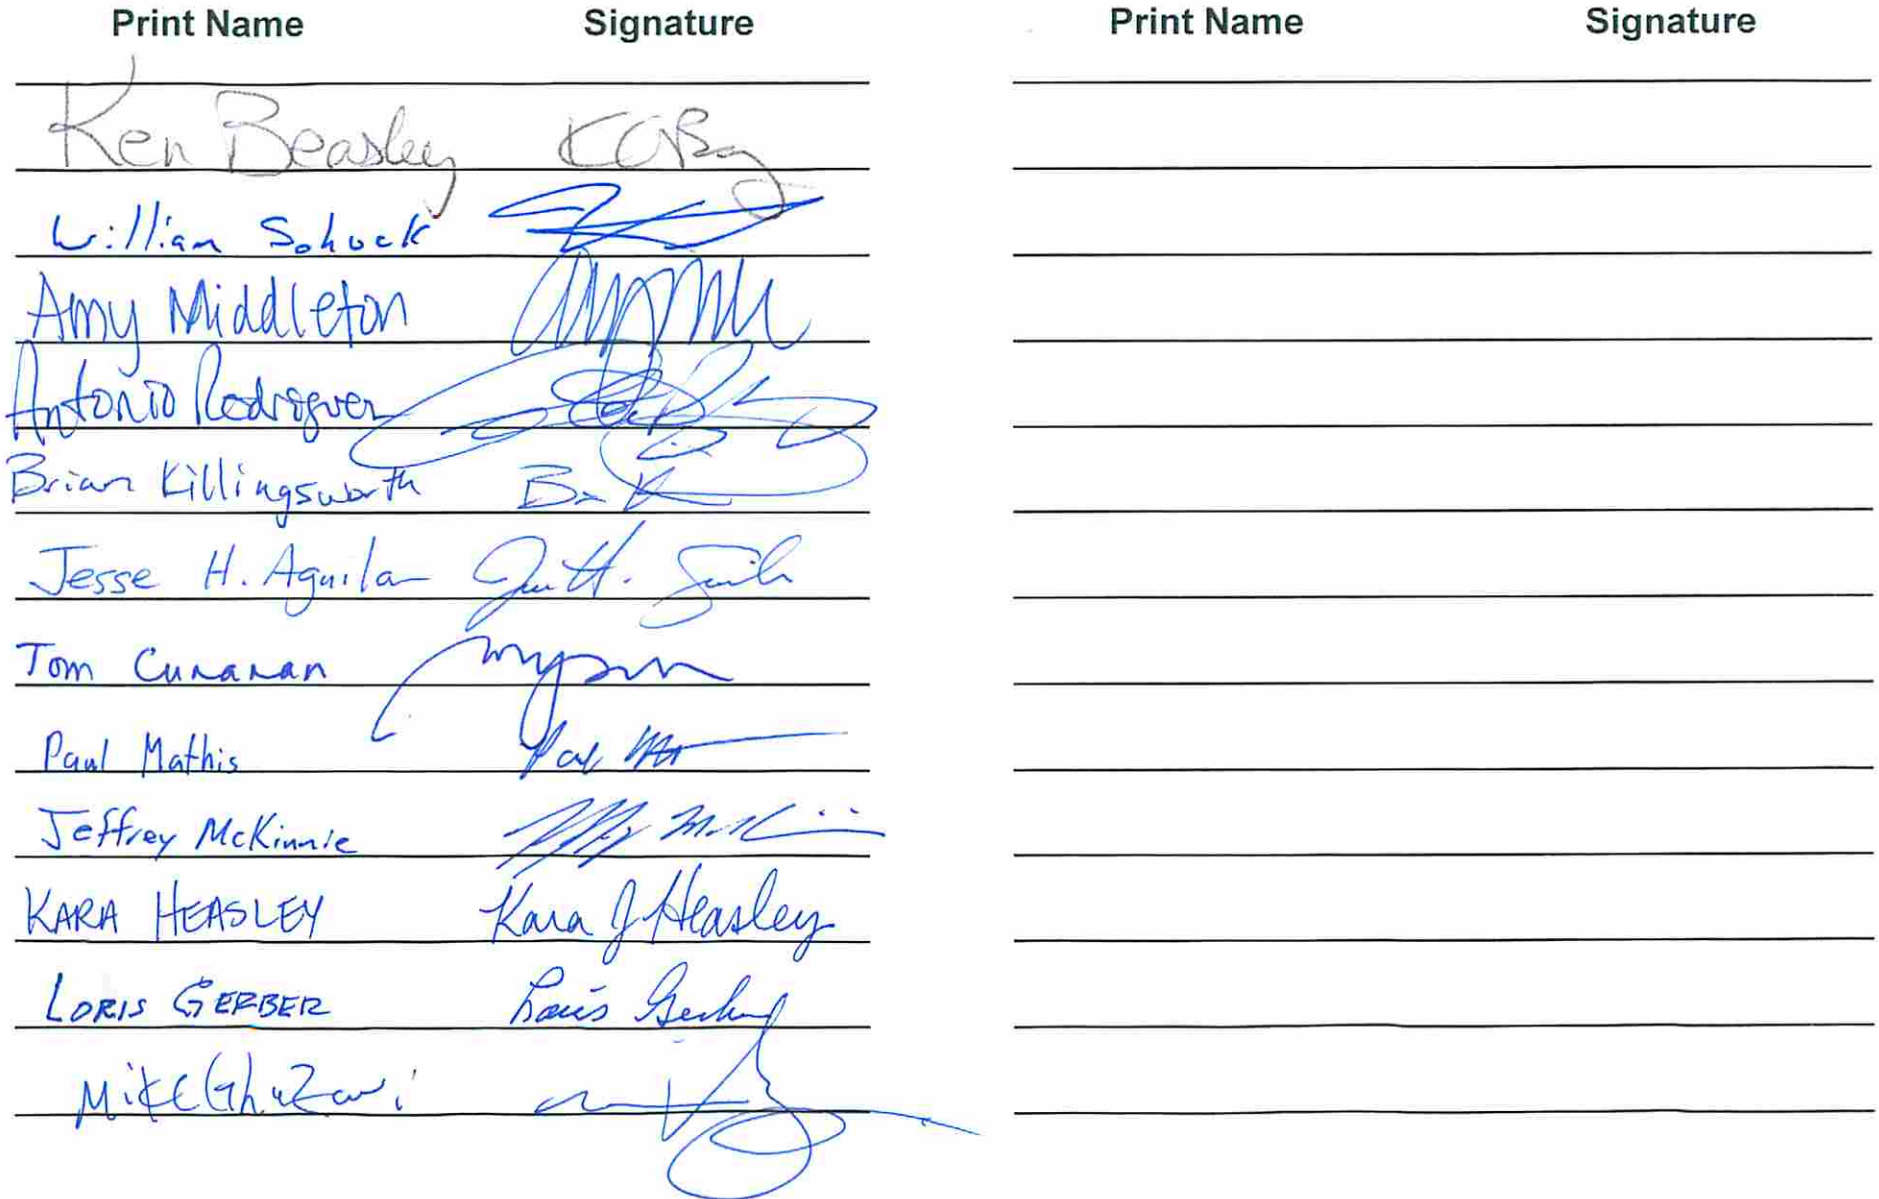 Print Name Signature Print Name Signature
Ken Beasley KGB
William Schuck
Amy Middleton
Antonio Rodriguez
Brian Killingsworth
Jesse H. Aguilar
Tom Cunanan
Paul Mathis
Jeffrey McKinnie
KARA HEASLEY Kara J Heasley
LORIS GERBER Loris Gerber
Mike Ghazavi